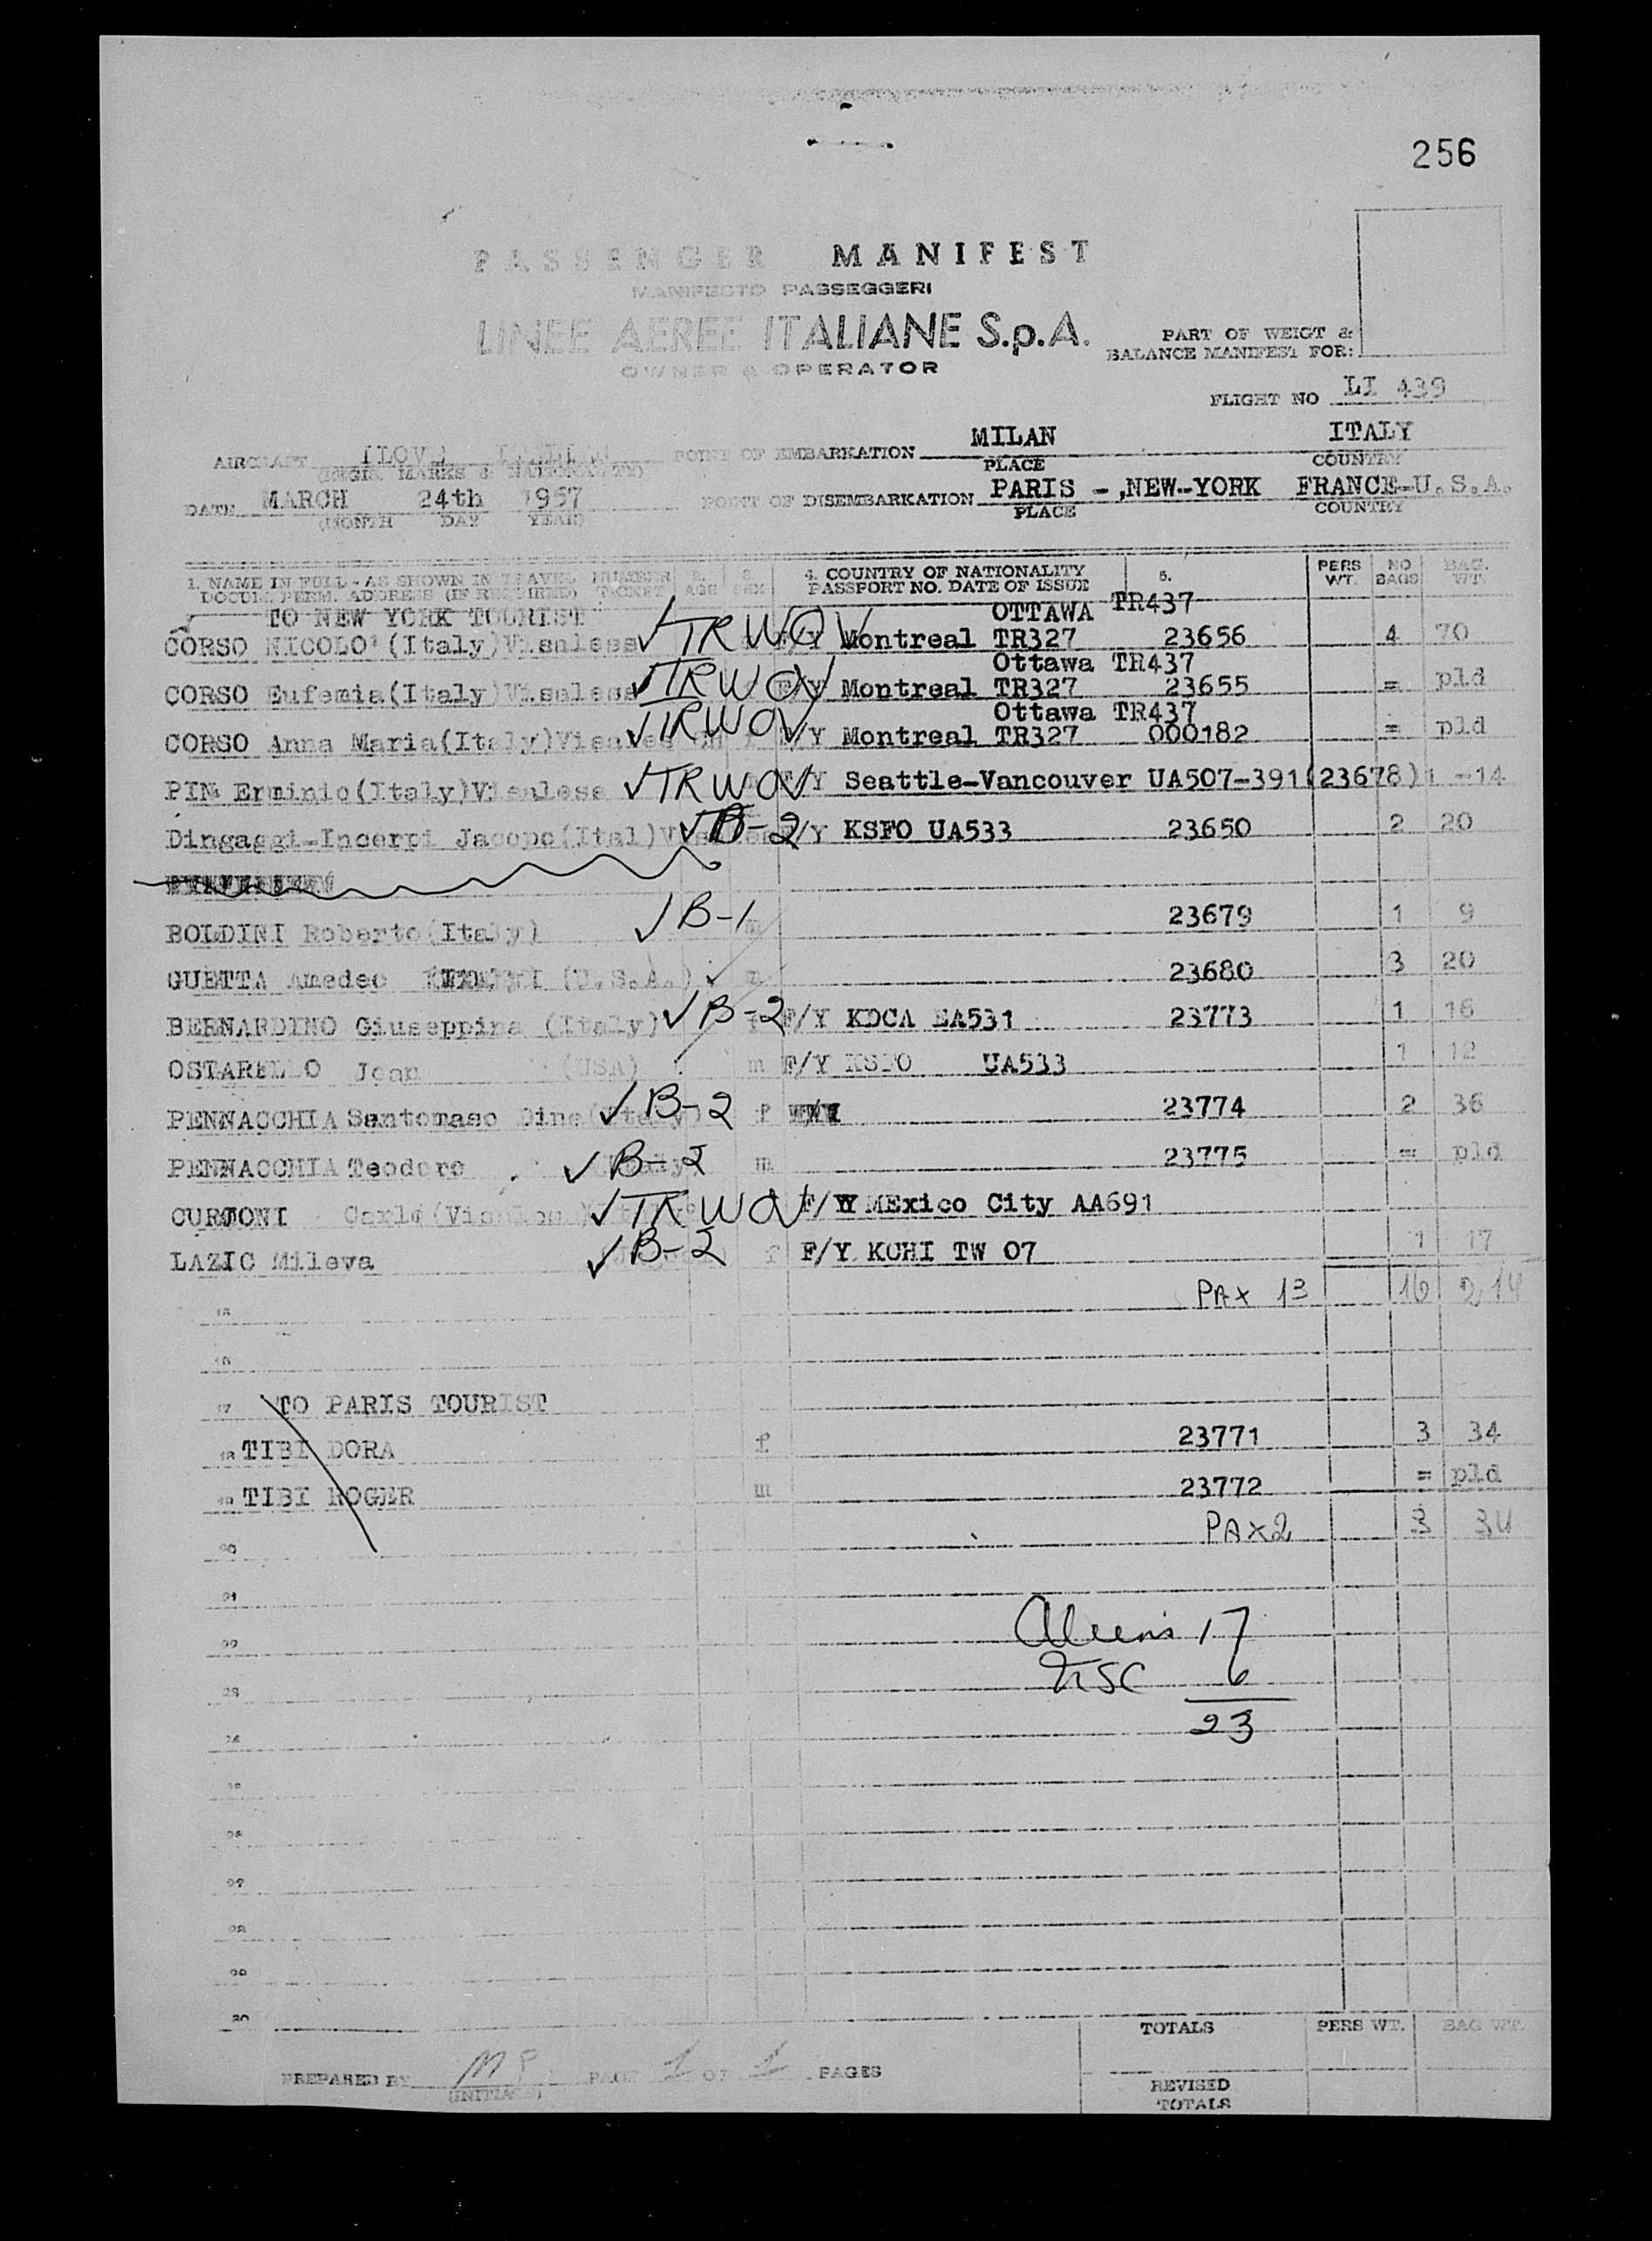 256
PASSENGER MANIFEST
MANIFESTO PASSEGGERI
LINEE AEREE ITALIANE S.p.A.
OWNER & OPERATOR
PART OF WEIGT &
BALANCE MANIFEST FOR:
FLIGHT NO LI 439
AIRCRAFT POINT OF EMBARKATION MILAN ITALY
(REGIS. MARKS & NATIONALITY) PLACE COUNTRY
DATE MARCH 24th 1957 POINT OF DISEMBARKATION PARIS - ,NEW--YORK FRANCE-U.S.A.
(MONTH DAY YEAR) PLACE COUNTRY
1. NAME IN FULL - AS SHOWN IN TRAVEL NUMBER 2. 3. 4. COUNTRY OF NATIONALITY 5. PERS NO BAG.
DOCUM. PERM. ADDRESS (IF REQUIRED) TICKET AGE SEX PASSPORT NO. DATE OF ISSUE WT. BAGS WT.
TO NEW YORK TOURIST OTTAWA TR437
CORSO NICOLO' (Italy) ✓TRWOV Montreal TR327 23656 4 70
Ottawa TR437
CORSO Eufemia(Italy) ✓TRWOV Montreal TR327 23655 = pld
Ottawa TR437
CORSO Anna Maria(Italy) ✓TRWOV Montreal TR327 000182 = pld
PIN Erminio(Italy)Visaless ✓TRWOV Seattle-Vancouver UA507-391(23678)1 -14
Dingaggi-Incerpi Jacopo(Ital) ✓B-2 /Y KSFO UA533 23650 2 20
BOLDINI Roberto(Italy) ✓B-1 m 23679 1 9
GUETTA Amedeo (U.S.A.) ✓ m 23680 3 20
BERNARDINO Giuseppina (Italy) ✓B-2 F/Y KDCA EA531 23773 1 16
OSTARELLO Jean (USA) m F/Y KSFO UA533 1 12
PENNACCHIA Santomaso Dina(Italy) ✓B-2 f 23774 2 36
PENNACCHIA Teodoro ✓B-2 m 23775 = pld
CURTONI Carlo ✓TRWOV F/Y MExico City AA691
LAZIC Mileva ✓B-2 f F/Y KCHI TW 07 1 17
PAX 13 16 214
17 TO PARIS TOURIST
18 TIBI DORA f 23771 3 34
19 TIBI ROGER m 23772 = pld
20 PAX2 3 34
21
22 Aliens 17
23 USC 6
23
24
25
26
27
28
29
30
TOTALS PERS WT. BAG WT.
PREPARED BY MP PAGE 1 OF 1 PAGES
(INITIALS) REVISED
TOTALS